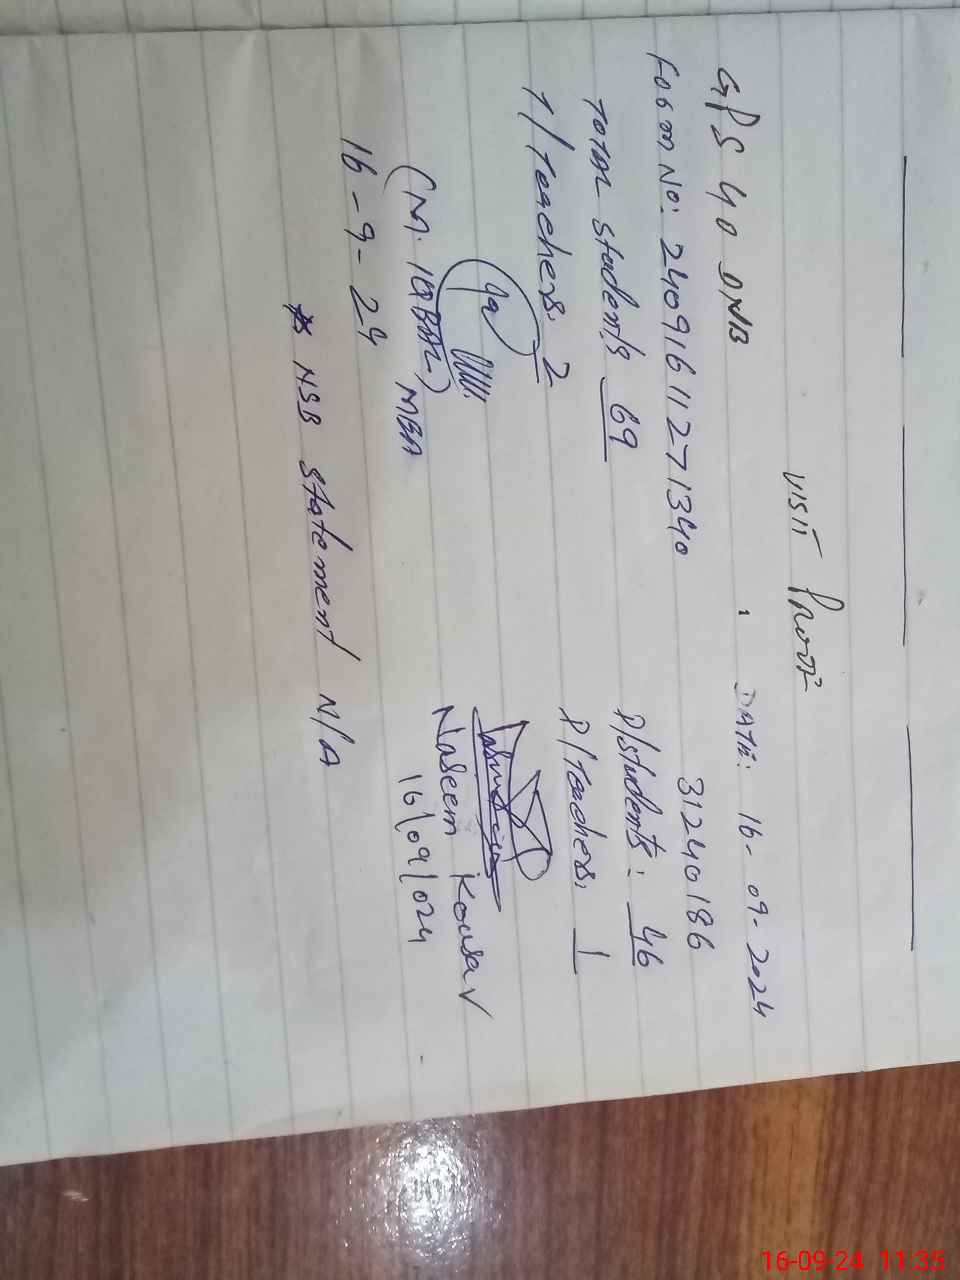 VISIT PROOF
GPS 40 DNB DATE: 16-09-2024
Form No: 2409161127 1340 31240186
Total Students 69 P/Students: 46
T/Teachers. 2 P/Teachers. 1
(M. IQBAL) MEA Naseem Kousar
16-9-24 16/09/024
* NSB Statement N/A
16-09-24 11:35